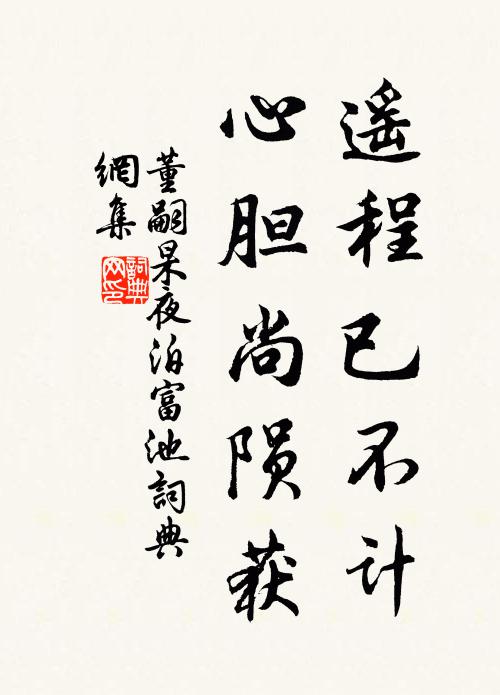 遥程已不计
心胆尚陨获
董嗣杲夜泊富池詞典
網集
詞典網印